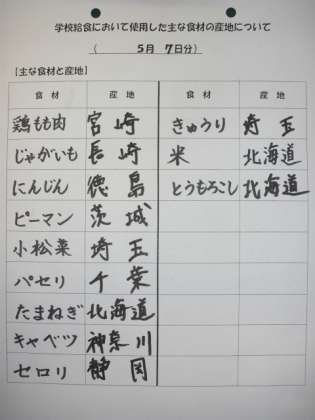 学校給食において使用した主な食材の産地について
（ 5月 7日分）
［主な食材と産地］
食材 産地 食材 産地
鶏もも肉 宮崎 きゅうり 埼玉
じゃがいも 長崎 米 北海道
にんじん 徳島 とうもろこし 北海道
ピーマン 茨城
小松菜 埼玉
パセリ 千葉
たまねぎ 北海道
キャベツ 神奈川
セロリ 静岡